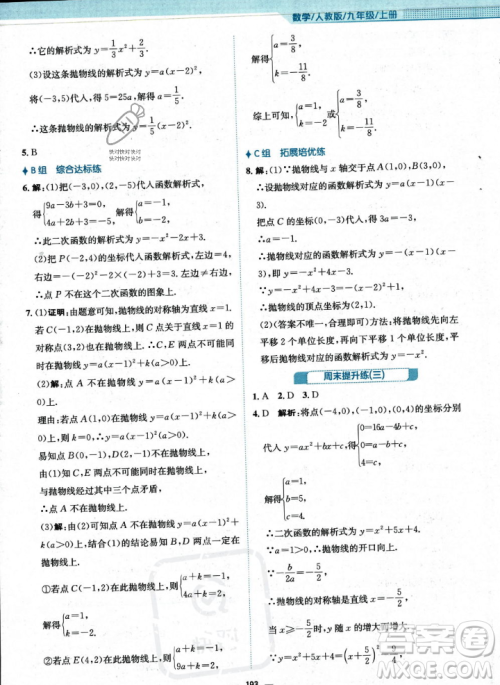 数学/人教版/九年级/上册
∴它的解析式为y=1/3x²+2/3x.
(3)设这条抛物线的解析式为y=a(x-2)².
将(-3,5)代入,得5=25a,解得a=1/5.
∴这条抛物线的解析式为y=1/5(x-2)².
5. B
B组 综合达标练
6. 解:(1)把(-3,0),(2,-5)代入函数解析式,
得{9a-3b+3=0, 4a+2b+3=-5, 解得{a=-1, b=-2,
∴此二次函数的解析式为y=-x²-2x+3.
(2)把P(-2,4)的坐标代入函数解析式,左边=4,
右边=-(-2)²-2×(-2)+3=3.
∵左边≠右边,
∴点P不在这个二次函数的图象上.
7. (1)证明:由题意可知,抛物线的对称轴为直线x=1.
若点C(-1,2)在抛物线上,则点C关于直线x=1的
对称点(3,2)也在这条抛物线上.
∴C,E两点不可能同时在抛物线上.
(2)解:点A不在抛物线上.
理由:若点A(1,0)在抛物线y=a(x-1)²+k(a>0)
上,则k=0,得y=a(x-1)²(a>0).
易知B,D两点都不可能在抛物线上.
∴仅有C,E两点可能在抛物线上.
这与C,E两点不可能同时在抛物线上,即与“有三
个点在抛物线上”矛盾.
∴点A不在抛物线上.
(3)解:由(2)可知点A不在抛物线y=a(x-1)²+k
上.
①若点C(-1,2),D(2,-1)在抛物线上,
则{a+k=-1, 4a+k=2,
解得{a=1, k=-2.
②若点E(4,2),D(2,-1)在抛物线上,则{a+k=-1, 9a+k=2,
解得{a=3/8, k=-11/8.
综上可知,{a=1, k=-2或{a=3/8, k=-11/8.
C组 拓展培优练
8. 解:(1)∵抛物线与x轴交于点(1,0),(3,0),
∴设抛物线对应的函数解析式为y=a(x-1)(x-3).
把点C(0,-3)的坐标代入,得3a=-3.
∴a=-1.
∴抛物线对应的函数解析式为y=-(x-1)(x-3),
即y=-x²+4x-3.
∵y=-x²+4x-3=-(x-2)²+1,
∴抛物线的顶点坐标为(2,1).
(2)(答案不唯一,合理即可)如:先将抛物线向左平
移2个单位长度,再向下平移1个单位长度,得到的
抛物线对应的函数解析式为y=-x².
周末提升练(三)
1. A 2. D 3. D
4. D 解析:将(0,4),(-1,0),(-4,0)的坐标分别
代入y=ax²+bx+c,得{4=c, 0=a-b+c, 0=16a-4b+c,
解得{a=1, b=5, c=4.
∴二次函数的解析式为y=x²+5x+4.
∵a=1>0,∴抛物线的开口向上.
∵-b/2a=-5/2,∴抛物线的对称轴是直线x=-5/2.
∴当x≥-5/2时,y随x的增大而增大.
∵y=x²+5x+4=(x+5/2)²-9/4,
193